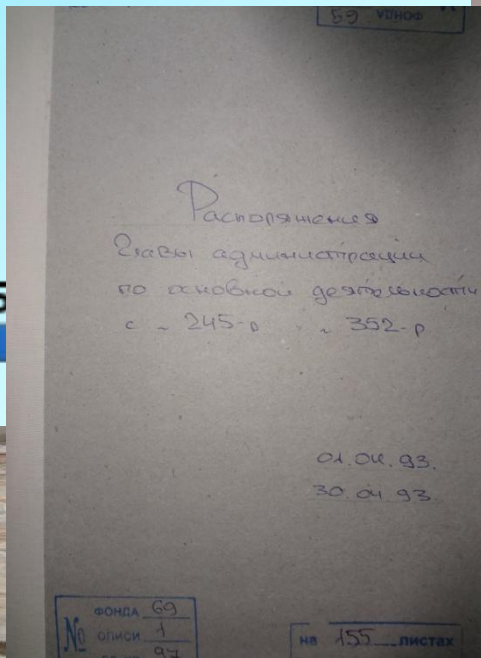 ФОНДА 69
Распоряжения
Главы администрации
по основной деятельности
с № 245-р № 352-р
01.04.93.
30.04.93
ФОНДА 69
№ ОПИСИ 1
97
на 155 листах